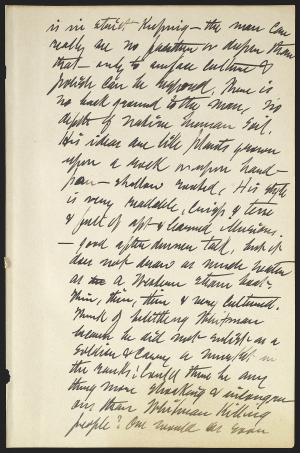 is in strict keeping — the man can
really see no further or deeper than
that — only to surface culture &
polish can he respond. There is
no back ground to the man, no
depth of native human soil.
His ideas are like plants grown
upon a rock or upon hard-
pan — shallow rooted. His style
is very readable, crisp & terse
& full of apt & learned allusions
— good after dinner talk, but it
does not draw as much water
as a Western steam boat.
Thin, thin, thin & very cultured.
Think of belittling Whitman
because he did not enlist as a
soldier & carry a musket in
the ranks! Could there be any
thing more shocking & incongru-
ous than Whitman killing
people? One would as soon